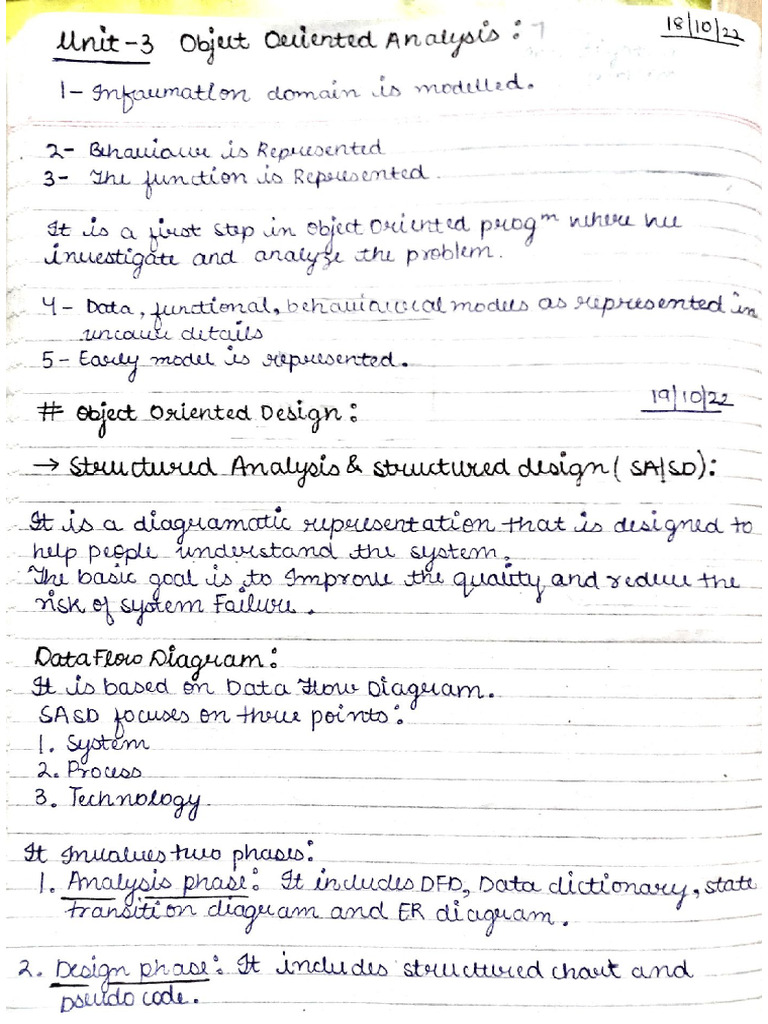 18/10/22
Unit-3 Object Oriented Analysis:
1- Information domain is modelled.
2- Behaviour is Represented
3- The function is Represented.
It is a first step in object oriented progᵐ where we
investigate and analyze the problem.
4- Data, functional, behavioural models as represented in
uncover details
5- Early model is represented.
19/10/22
# Object Oriented Design:
→ Structured Analysis & structured design (SA/SD):
It is a diagramatic representation that is designed to
help people understand the system.
The basic goal is to improve the quality and reduce the
risk of system Failure.
Data Flow Diagram:
It is based on Data Flow Diagram.
SASD focuses on three points:
1. System
2. Process
3. Technology.
It involves two phases:
1. Analysis phase: It includes DFD, Data dictionary, state
transition diagram and ER diagram.
2. Design phase: It includes structured chart and
pseudo code.